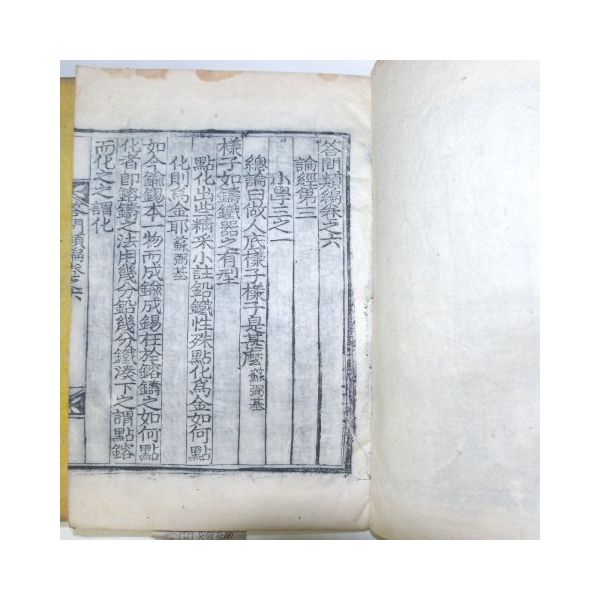 答問類編卷之六
論經第三
小學三之一
總論曰做人底樣子樣子是甚麽 蘇弼基
樣子如鑄鐵器之有型
點化出此精采小註鉛鐵性殊點化爲金如何點
化則爲金耶 蘇弼基
如今鍮錫本一物而成鍮成錫在於鎔鑄之如何點
化者即鎔鑄之法用幾分鉛幾分鐵湊下之謂點鎔
而化之之謂化
答問類編卷之六